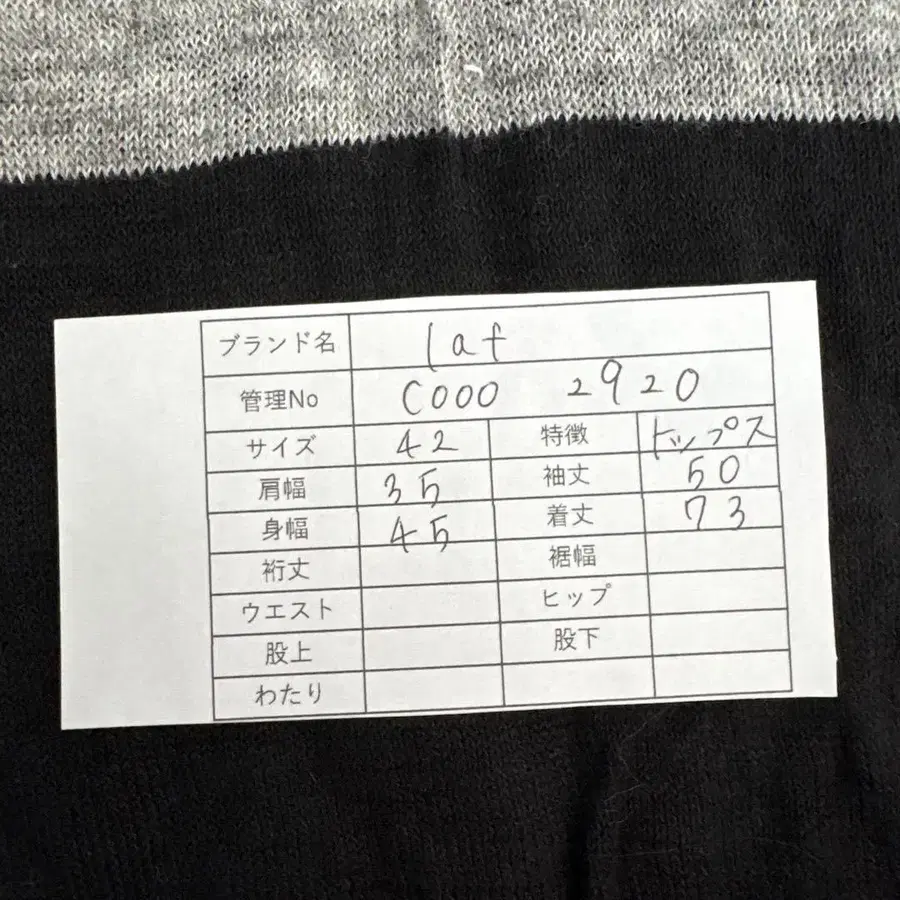 ブランド名 laf
管理No C000 2920
サイズ 42 特徴 トップス
肩幅 35 袖丈 50
身幅 45 着丈 73
裄丈 裾幅
ウエスト ヒップ
股上 股下
わたり